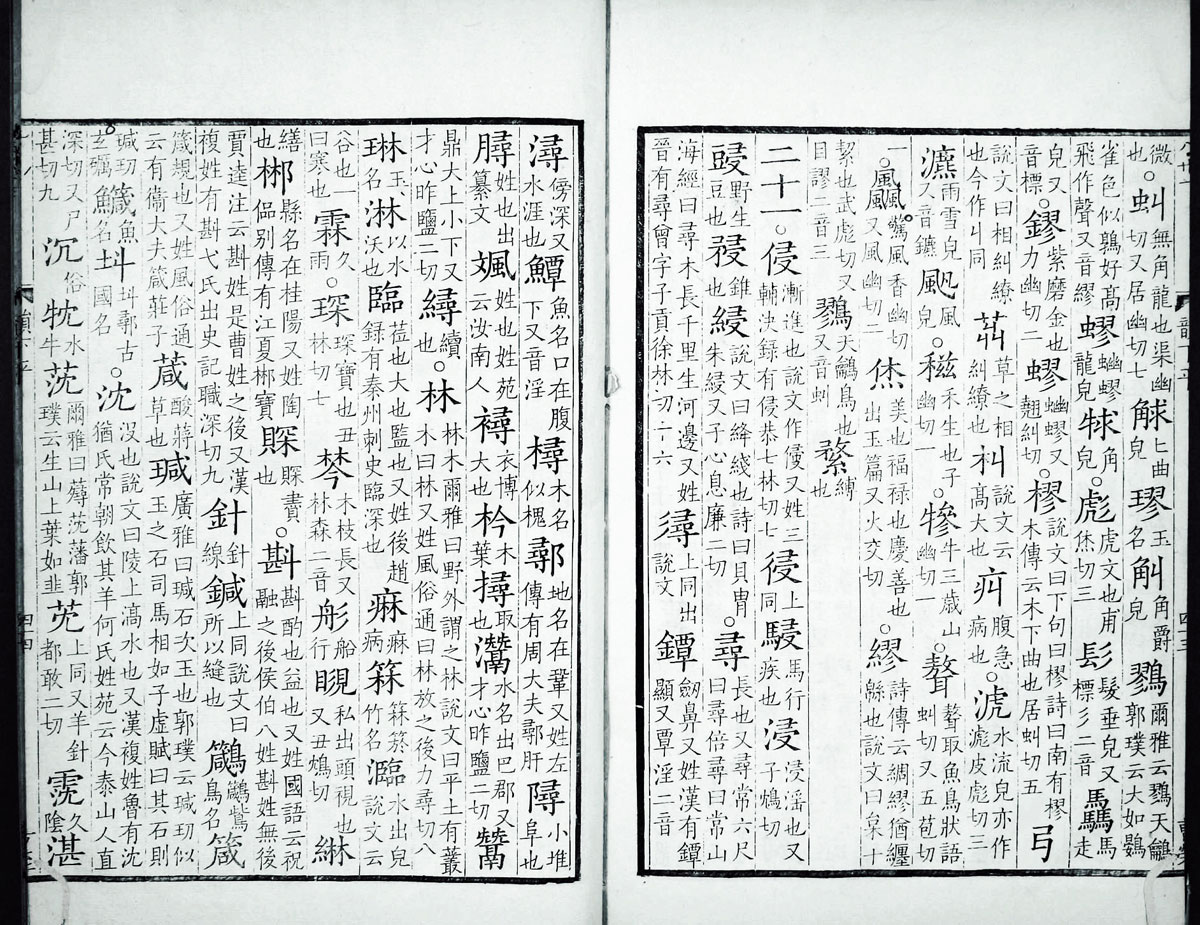 微也。虯無角龍也渠幽切又居幽切七觩匕曲皃璆玉名觓角爵皃鷚爾雅云鷚天鸙郭璞云大如鷃
雀色似鶉好髙飛作聲又音繆蟉蚴蟉龍皃觩角皃。彪虎文也甫烋切三髟髪垂皃又標彡二音驫馬走
皃又音標。鏐紫磨金也力幽切二蟉蚴蟉又翹糾切。樛說文曰下句曰樛詩曰南有樛木傳云木下曲也居虯切五丩
說文曰相糾繚也今作丩同茻草之相糾繚也朻說文云髙木也疝腹急病也。淲水流皃亦作滮皮彪切三
瀌雨雪皃又音鑣颩風皃。稵禾生也子幽切一。犙牛三歳山幽切一。聱聱取魚鳥狀語虯切又五苞切
一。飍驚風香幽切又風幽切二烋美也福禄也慶善也出玉篇又火交切。繆詩傳云綢繆猶纏緜也說文曰枲十
絜也武彪切又目謬二音三鷚天鸙鳥也又音虯䋷縛也
二十一。侵漸進也說文作𠊎又姓三輔決録有侵恭七林切七㑴上同駸馬行疾也浸浸淫也又子鴆切
䜴野生豆也祲錐綅說文曰絳綫也詩曰貝胄朱綅又子心息廉二切。尋長也又尋常六尺曰尋倍尋曰常山
海經曰尋木長千里生河邊又姓晉有尋曾字子貢徐林切十六㝷上同出說文鐔劒鼻又姓漢有鐔顯又覃淫二音
潯傍深又水涯也鱏魚名口在腹下又音淫樳木名似槐鄩地名在鞏又姓左傳有周大夫鄩肝小堆阜也
姓也出纂文姓也姓苑云汝南人襑衣博大也枔木葉也撏取也灊水名出巴郡又才心昨鹽二切鬵
鼎大上小下又才心昨鹽二切續也。林林木爾雅曰野外謂之林說文曰平土有叢木曰林又姓風俗通曰林放之後力尋切八
琳玉名淋以水沃也臨莅也大也監也又姓後趙録有秦州刺史臨深也痳痳病箖箖箊竹名瀶水出皃說文云
谷也一曰寒也霖久雨。琛琛寶也丑林切七棽木枝長又林森二音彤船行覘私出頭視也又丑鴆切綝
繕也郴縣名在桂陽又姓陶侃別傳有江夏郴寶賝賝賮也。斟斟酌也益也又姓國語云祝融之後侯伯八姓斟姓無後
賈逵注云斟姓是曹姓之後又漢複姓有斟弋氏出史記職深切九針針線鍼上同說文曰所以縫也鳥名箴
箴規也又姓風俗通云有衛大夫箴莊子葴酸蔣草也瑊廣雅曰瑊石次玉也郭璞云瑊玏似玉之石司馬相如子虛賦曰其石則
瑊玏玄礪鱵魚名㘰㘰鄩古國名。沈沒也說文曰陵上滈水也又漢複姓魯有沈猶氏常朝飲其羊何氏姓苑云今泰山人直
深切又尸甚切九沉俗牨水牛莐爾雅曰薚莐藩郭璞云生山上葉如韭上同又羊針都敢二切霃久陰湛